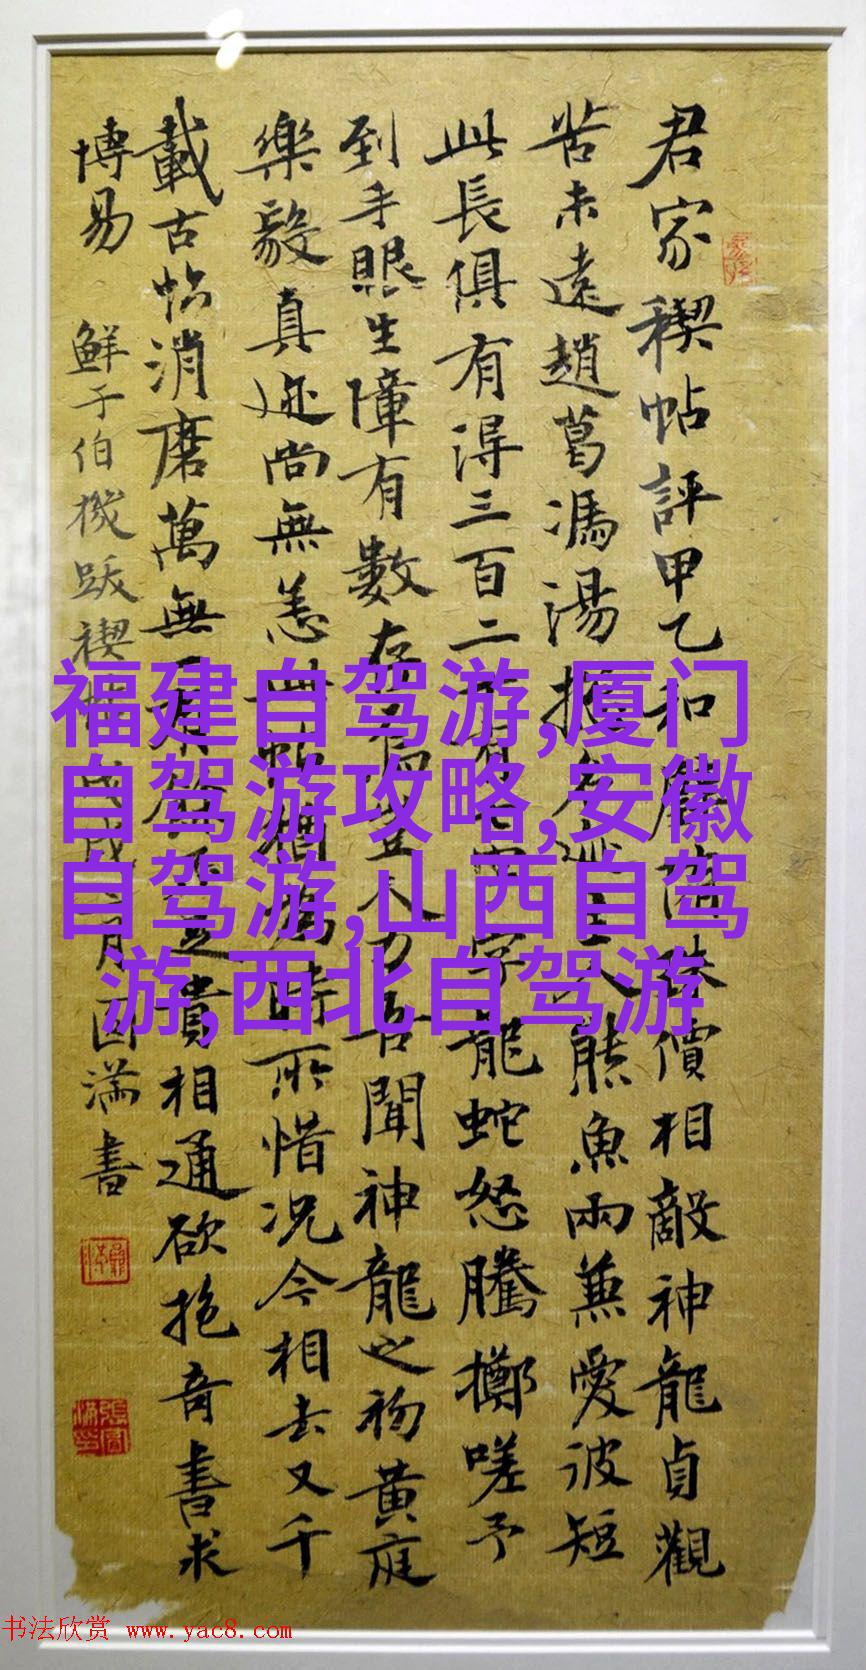 君家稧帖評甲乙和籲價相敵神龍貞觀
苦未遠趙葛馮湯人熊魚兩兼愛彼短
此長俱有得三百二字龍蛇怒騰擲嗟予
到手眼生障有數吾聞神龍之初黃庭
樂毅真迹尚無恙此帖猶為時所惜況今相去又千
載古帖消磨萬無一貴相通欲抱奇書求
博易
鮮于伯機跋禊帖戊戌月國滿書
福建自驾游,厦门
自驾游攻略,安徽
自驾游,山西自驾
游,西北自驾游
书法欣赏 www.yac8.com